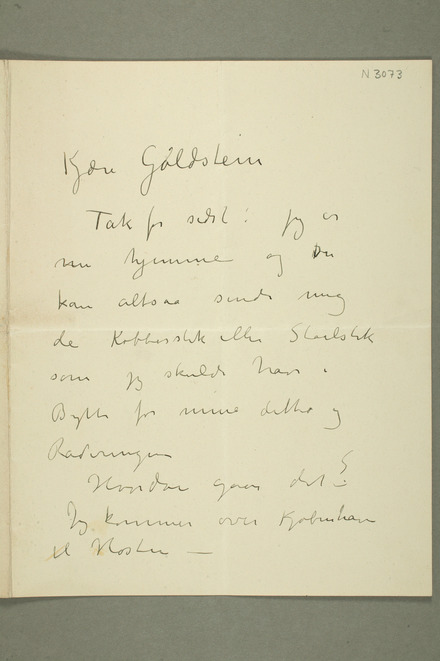 N 3073
Kjære Goldstein
Tak for sidst! Jeg er
nu hjemme og Du
kan altsaa sende mig
de Kobberstik eller Staalstik
som jeg skulde have i
Bytte for mine detto og
Raderinger
Hvordan gaar det?
Jeg kommer over Kjøbenhavn
til Høsten —